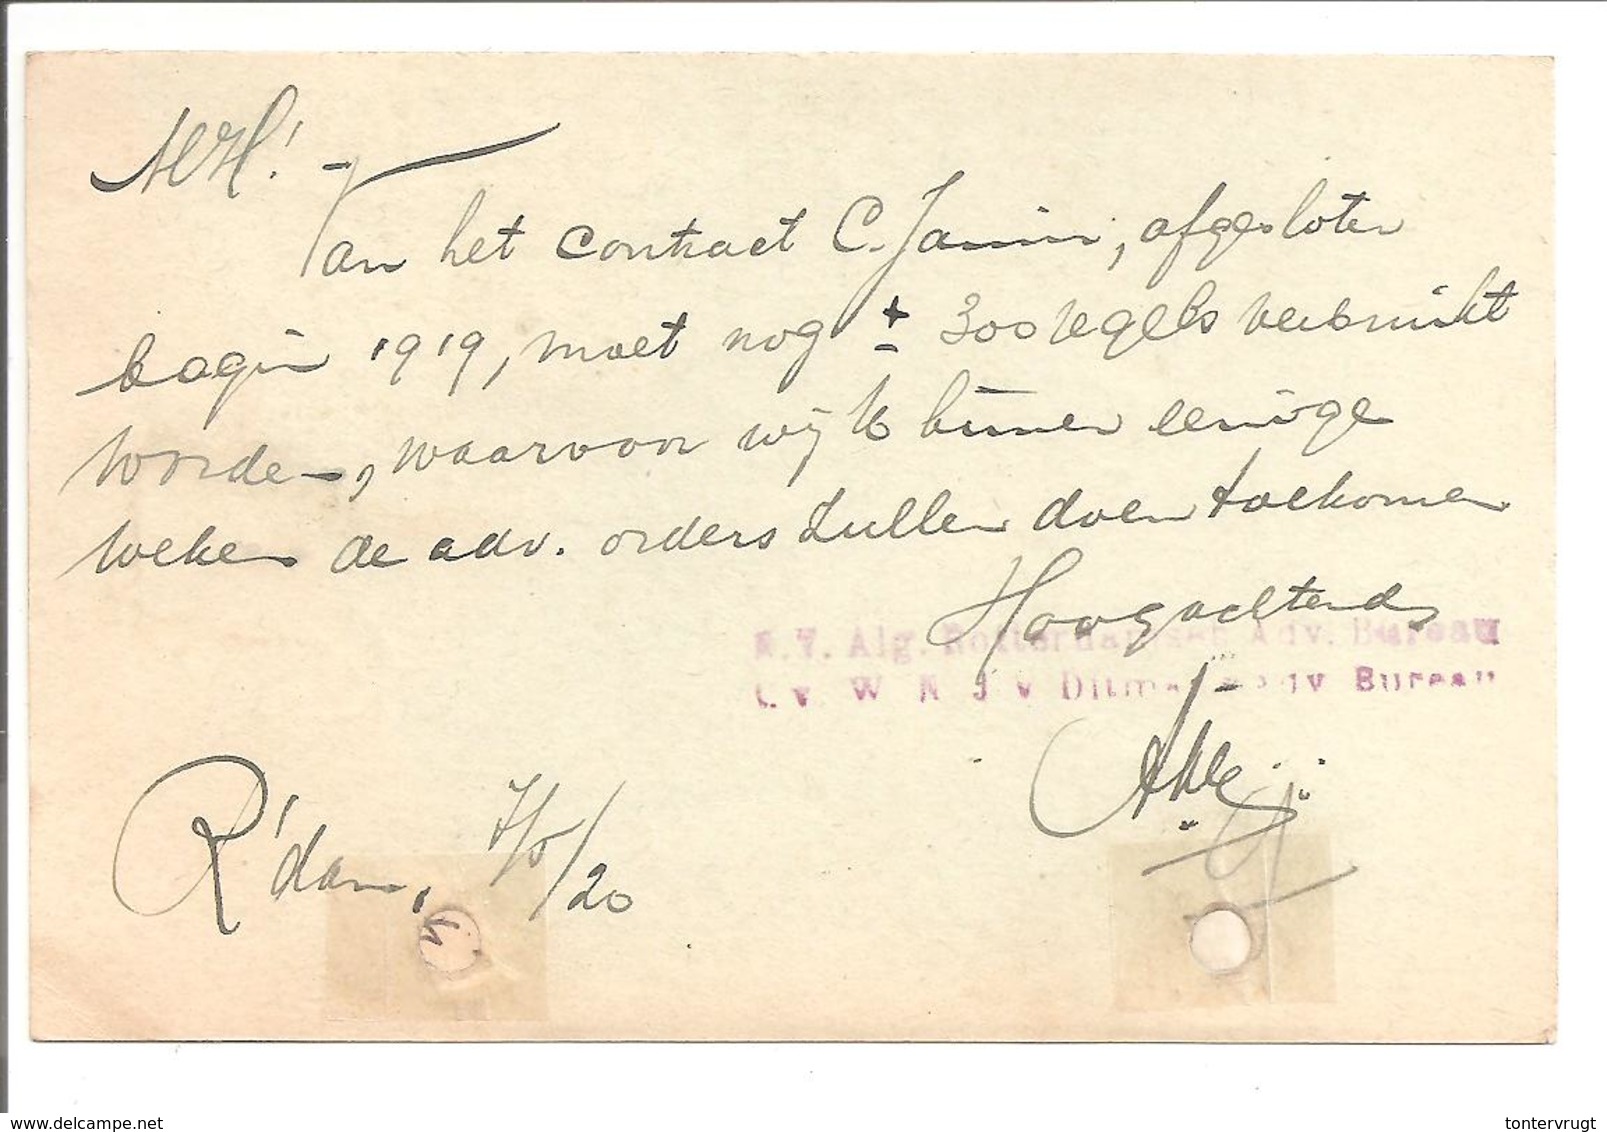 MH! -
Van het contract C. Jamin, afgesloten
begin 1919, moet nog ± 300 regels verbruikt
worden, waarvoor wij U binnen eenige
weken de adv. orders zullen doen toekomen
Hoogachtend
N.V. Alg. Rotterdamsch Adv. Bureau
v. W. N. J. v. Ditmar's Adv. Bureau
R'dam, 7/5/20
delcampe.net
tontervrugt